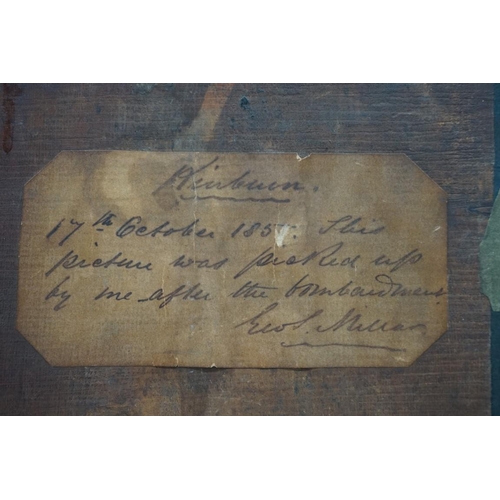 Kinburn.
17th October 185 . This
picture was picked up
by me after the bombardment
Geo S. Millar